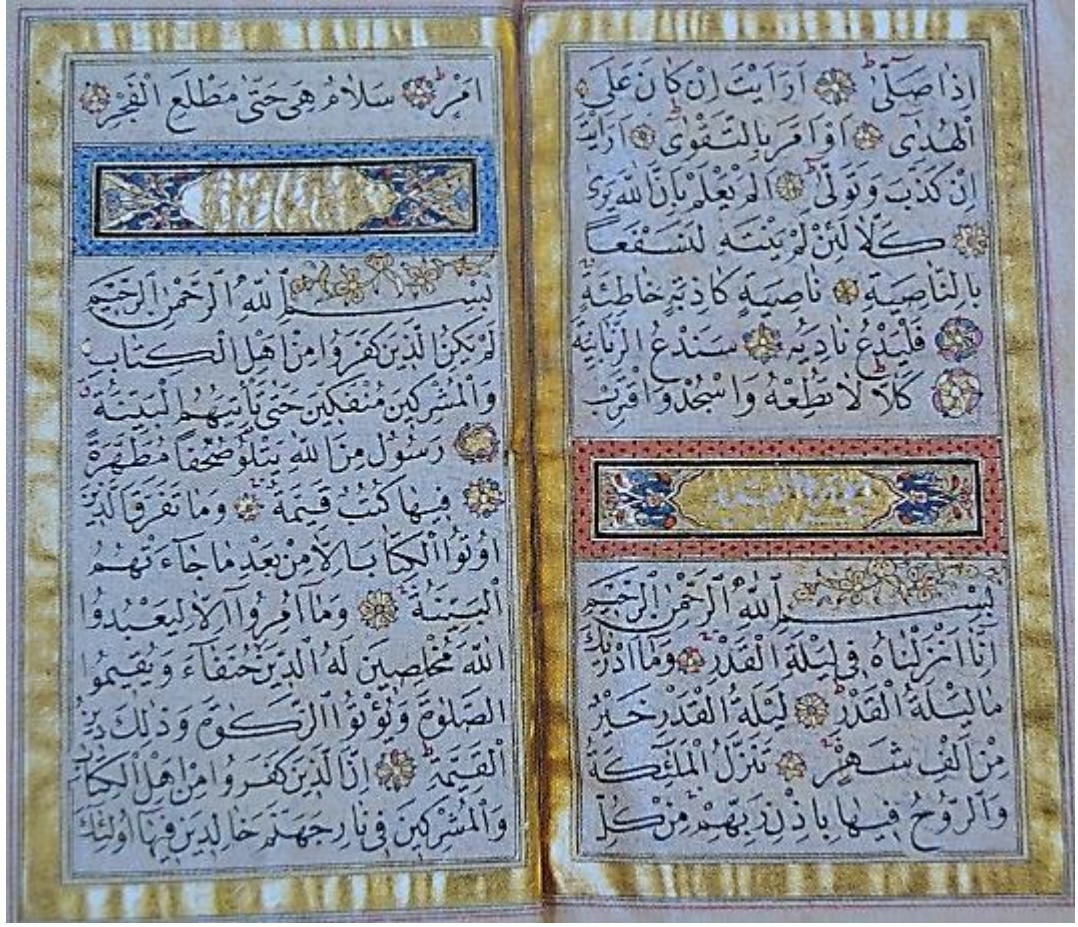 اِذَا صَلّٰىۜ اَرَاَيْتَ اِنْ كَانَ عَلَى
الْهُدٰٓى اَوْ اَمَرَ بِالتَّقْوٰىۜ اَرَاَيْتَ
اِنْ كَذَّبَ وَتَوَلّٰىۜ اَلَمْ يَعْلَمْ بِاَنَّ اللّٰهَ يَرٰى
كَلَّا لَئِنْ لَمْ يَنْتَهِ لَنَسْفَعاً
بِالنَّاصِيَةِۙ نَاصِيَةٍ كَاذِبَةٍ خَاطِئَةٍ
فَلْيَدْعُ نَادِيَهُ سَنَدْعُ الزَّبَانِيَةَ
كَلَّاۜ لَا تُطِعْهُ وَاسْجُدْ وَاقْتَرِبْ
بِسْمِ اللّٰهِ الرَّحْمٰنِ الرَّحِيمِ
اِنَّٓا اَنْزَلْنَاهُ فِى لَيْلَةِ الْقَدْرِ وَمَٓا اَدْرٰيكَ
مَا لَيْلَةُ الْقَدْرِۜ لَيْلَةُ الْقَدْرِ خَيْرٌ
مِنْ اَلْفِ شَهْرٍۜ تَنَزَّلُ الْمَلٰٓئِكَةُ
وَالرُّوحُ فِيهَا بِاِذْنِ رَبِّهِمْ مِنْ كُلِّ
اَمْرٍۙ سَلَامٌ هِىَ حَتّٰى مَطْلَعِ الْفَجْرِ
بِسْمِ اللّٰهِ الرَّحْمٰنِ الرَّحِيمِ
لَمْ يَكُنِ الَّذِينَ كَفَرُوا مِنْ اَهْلِ الْكِتَابِ
وَالْمُشْرِكِينَ مُنْفَكِّينَ حَتّٰى تَأْتِيَهُمُ الْبَيِّنَةُۙ
رَسُولٌ مِنَ اللّٰهِ يَتْلُوا صُحُفاً مُطَهَّرَةً
فِيهَا كُتُبٌ قَيِّمَةٌۜ وَمَا تَفَرَّقَ الَّذِينَ
اُوتُوا الْكِتَابَ اِلَّا مِنْ بَعْدِ مَا جَٓاءَتْهُمُ
الْبَيِّنَةُۜ وَمَٓا اُمِرُٓوا اِلَّا لِيَعْبُدُوا
اللّٰهَ مُخْلِصِينَ لَهُ الدِّينَ حُنَفَٓاءَ وَيُقِيمُوا
الصَّلٰوةَ وَيُؤْتُوا الزَّكٰوةَ وَذٰلِكَ دِينُ
الْقَيِّمَةِۜ اِنَّ الَّذِينَ كَفَرُوا مِنْ اَهْلِ الْكِتَابِ
وَالْمُشْرِكِينَ فِى نَارِ جَهَنَّمَ خَالِدِينَ فِيهَا اُولٰٓئِكَ